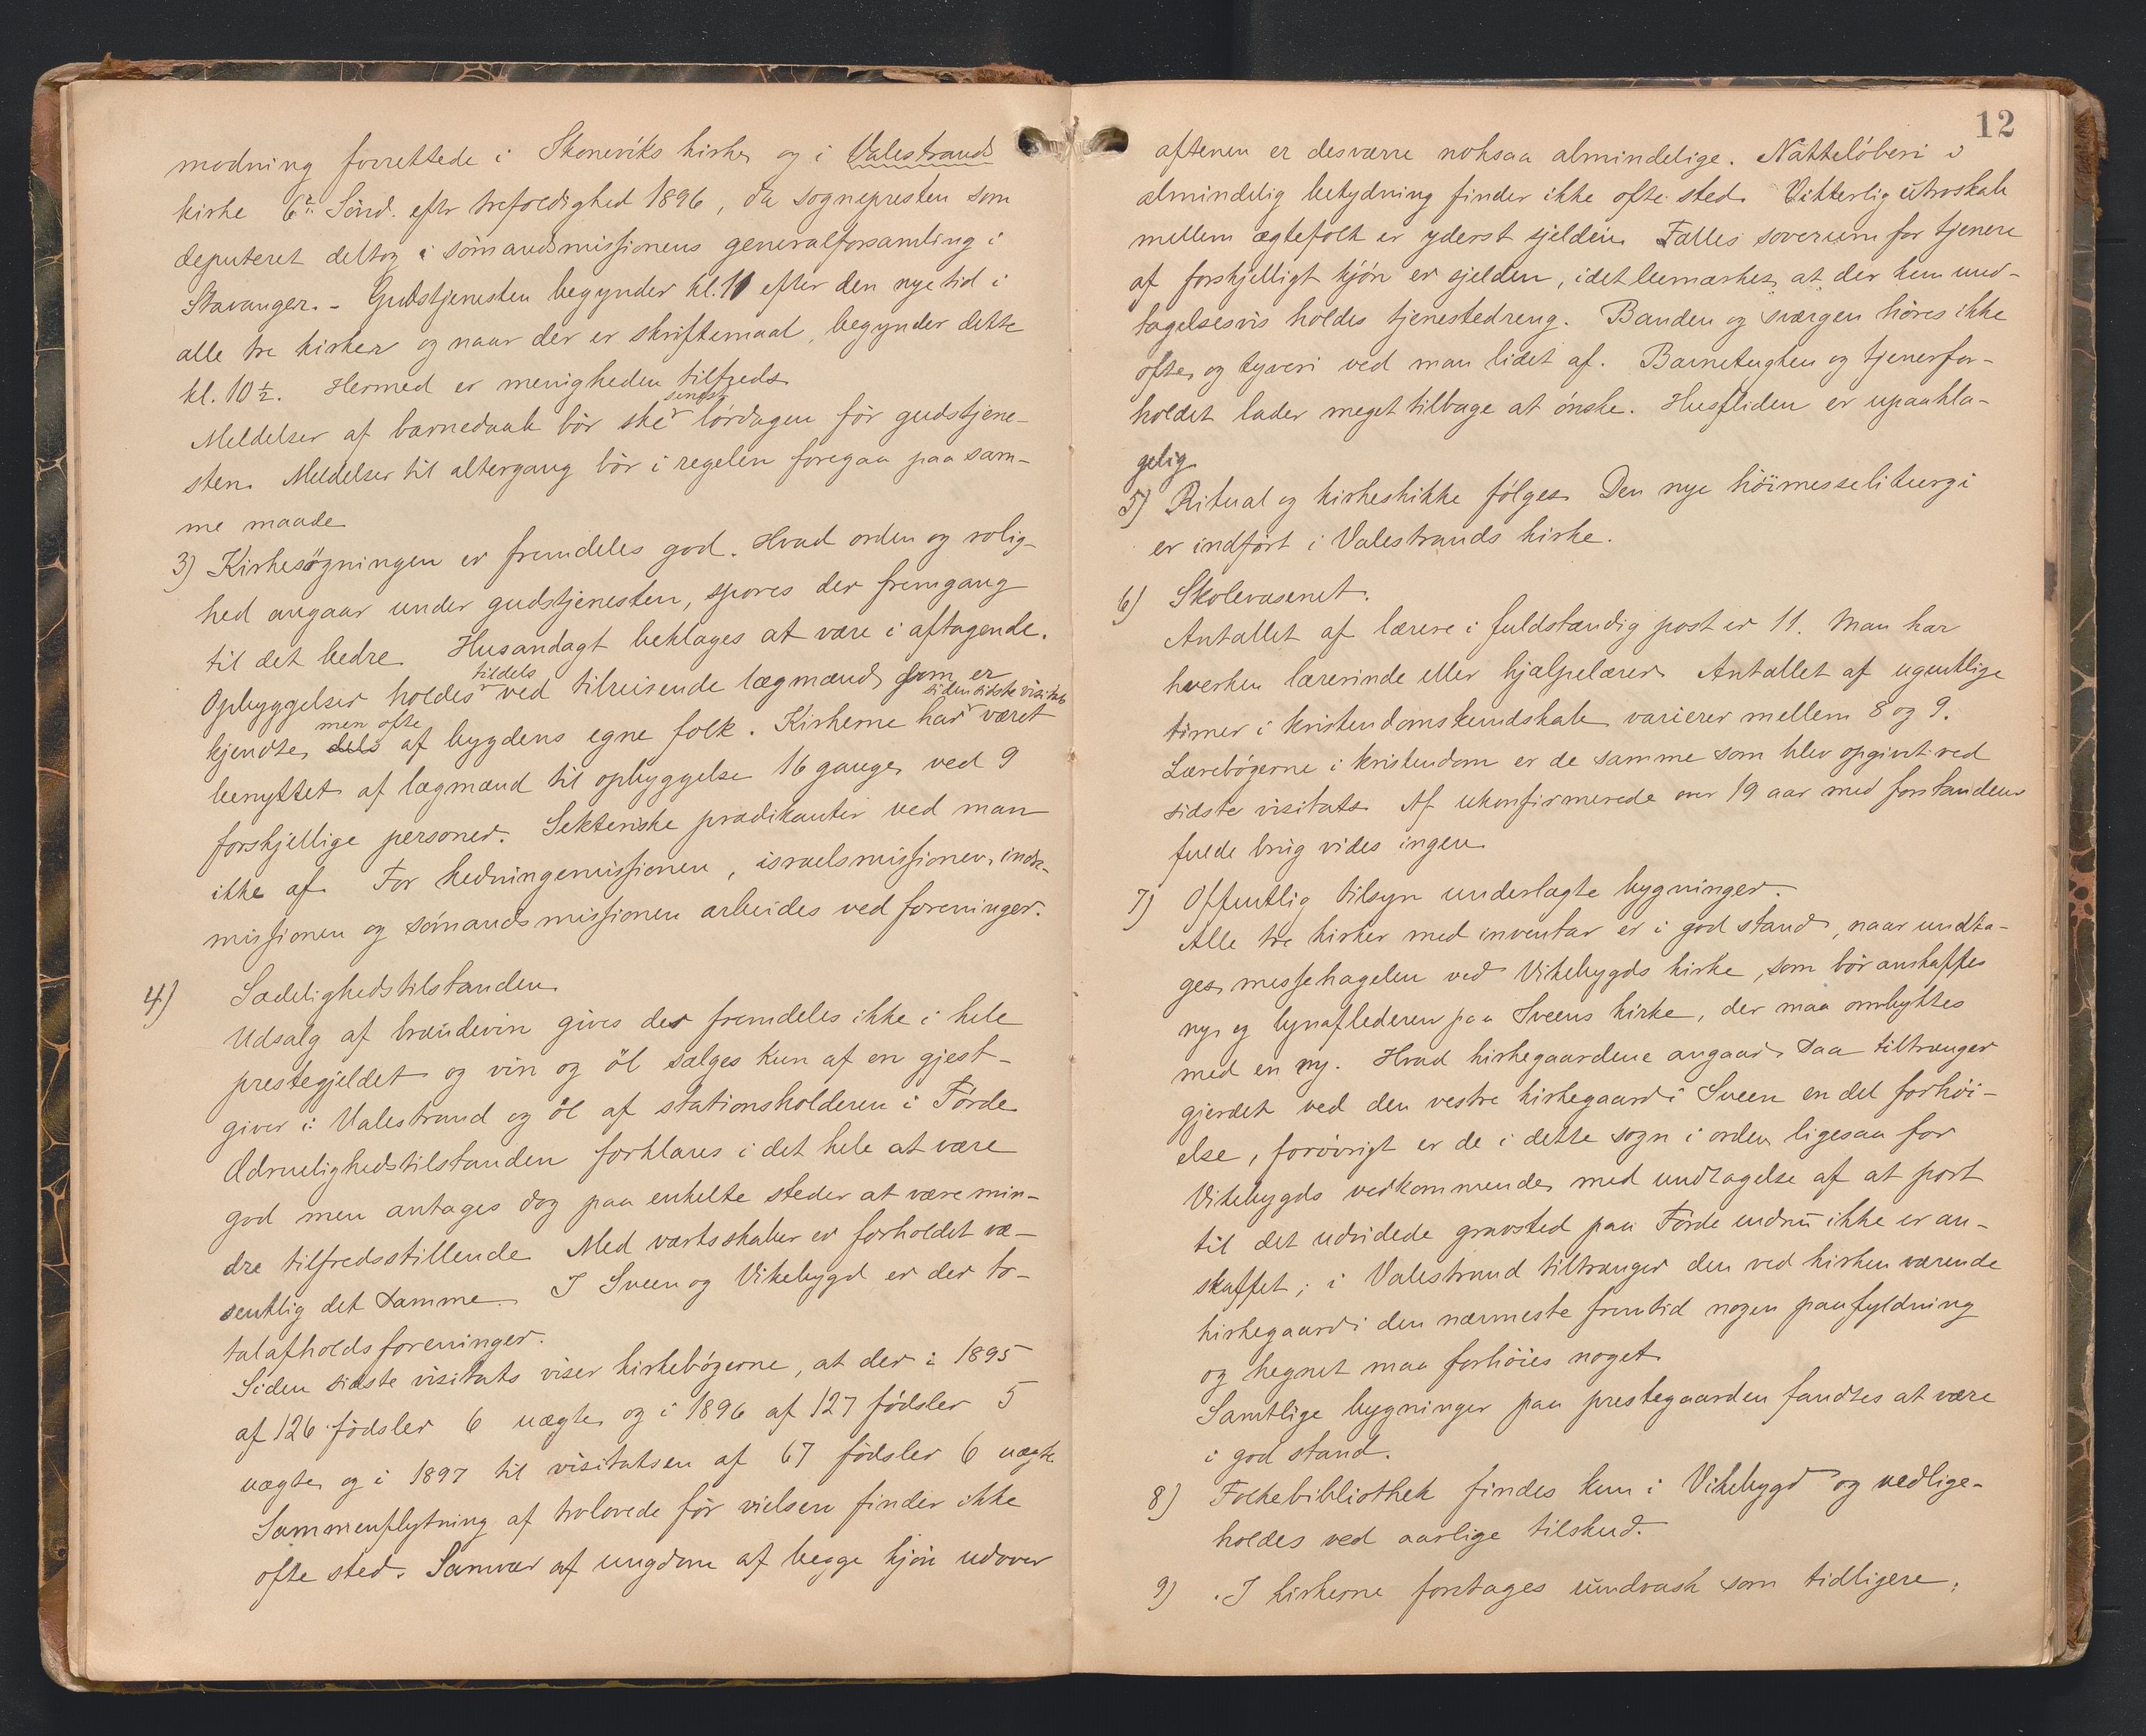 modning forrettede i Skoneviks kirke, og i Valestrands
kirke 6te Sönd. eftr trefoldighed 1896, da sognepresten som
deputeret deltog i sömandsmissionens generalforsamling i
Stavanger. - Gudstjenesten begynder kl. 11 efter den nye tid i
alle tre kirker og naar der er skriftemaal, begynder dette
kl. 10 ½. Hermed er menigheden tilfreds.
senest
Meldelser af barnedaab bör ske lördagen för gudstjene-
sten. Meldelser til altergang bör i regelen foregaa paa sam-
me maade.
3) Kirkesögningen er fremdeles god. Hvad orden og rolig-
hed angaar under gudstjenesten, spores der fremgang
til det bedre. Husandagt beklages at være i aftagende.
tildels
Opbyggelser holdes ved tilreisende lægmænd, som er
men ofte siden sidste visitats
kjendte, dels af bygdens egne folk. Kirkerne har været
benyttet af lægmænd til opbyggelse 16 gange, ved 9
forskjellige personer. Sekteriske prædikanter ved man
ikke af. For hedningemissionen, israelsmissionen, indre-
missionen og sömandsmissionen arbeides ved foreninger.
4) Sædelighedstilstanden.
Udsalg af brændevin gives der fremdeles ikke i hele
prestegjeldet og vin og öl sælges kun af en gjest-
giver i Valestrand og öl af stationsholderen i Förde.
Ædruelighedstilstanden forklares i det hele at være
god men antages dog paa enkelte steder at være min-
dre tilfredsstillende. Med værtsskaber er forholdet væ-
sentlig det samme. I Sveen og Vikebygd er der to-
talafholdsforeninger.
Siden sidste visitats viser kirkebögerne, at der i 1895
af 126 födsler 6 uægte, og i 1896 af 127 födsler 5
uægte, og i 1897 til visitatsen af 67 födsler 6 uægte.
Sammenflytning af trolovede för vielsen finder ikke
ofte sted. Samvær af ungdom af begge kjön udover
12
aftenen er desværre noksaa almindelige. Natteløberi i
almindelig betydning finder ikke ofte sted. Vitterlig utroskab
mellem ægtefolk er yderst sjelden. Fælles soverum for tjenere
af forskjelligt kjön er sjelden, idet bemærkes, at der kun und-
tagelsesvis holdes tjenestedreng. Banden og sværgen höres ikke
ofte, og tyveri ved man lidet af. Barnetugten og tjenerfor-
holdet lader meget tilbage at önske. Husfliden er upaakla-
gelig.
5) Ritual og kirkeskikke fölges. Den nye höimesseliturgi
er indfört i Valestrands kirke.
6) Skolevæsenet.
Antallet af lærere i fuldstændig post er 11. Man har
hverken lærerinde eller hjælpelærer. Antallet af ugentlige
timer i kristendomskundskab varierer mellem 8 og 9.
Lærebögerne i kristendom er de samme som blev opgivet ved
sidste visitats. Af ukonfirmerede over 19 aar med forstandens
fulde brug vides ingen.
7) Offentlig tilsyn underlagte bygninger.
Alle tre kirker med inventar er i god stand, naar undta-
ges messehagelen ved Vikebygds kirke, som bör anskaffes
ny, og lynaflederen paa Sveens kirke, der maa ombyttes
med en ny. Hvad kirkegaardene angaar, saa tiltrænger
gjerdet ved den vestre kirkegaard i Sveen en del forhöi-
else, forövrigt er de i dette sogn i orden, ligesaa for
Vikebygds vedkommende, med undtagelse af at port
til det udvidede gravsted paa Förde endnu ikke er an-
skaffet; i Valestrand tiltrænger den ved kirken værende
kirkegaard i den nærmeste fremtid nogen paafyldning
og hegnet maa forhöies noget.
Samtlige bygninger paa prestegaarden fandtes at være
i god stand.
8) Folkebibliothek findes kun i Vikebygd og vedlige-
holdes ved aarlige tilskud.
9) I kirkerne foretages rundvask som tidligere.